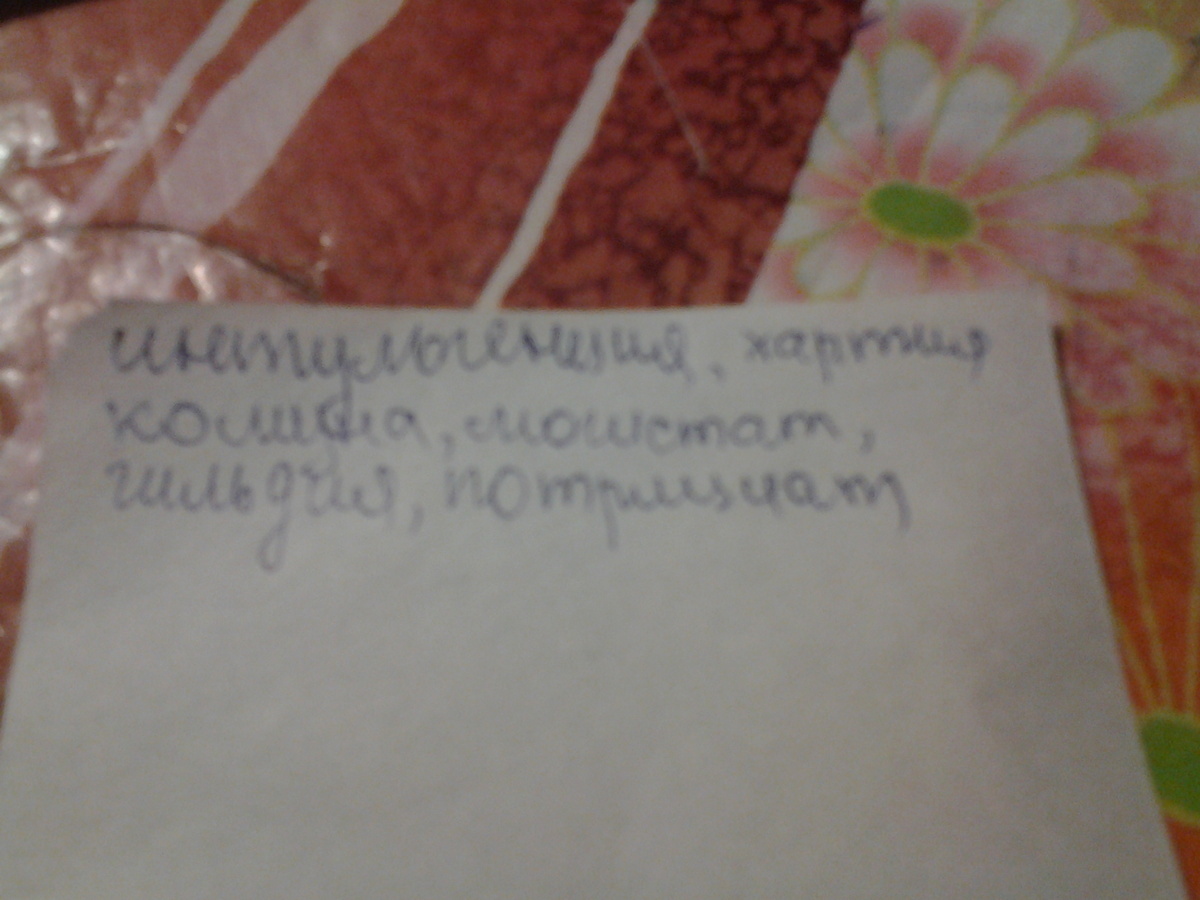 интульгенция, хартия
колицма, моистат,
гильдия, потрициат